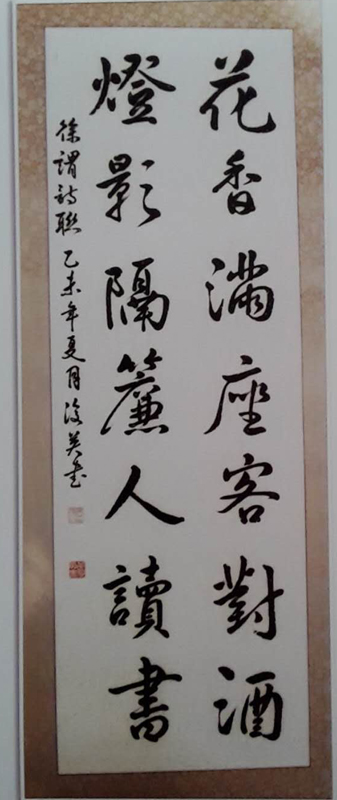 花香滿座客對酒
燈影隔簾人讀書
徐謂詩聯 乙未年夏月 英書